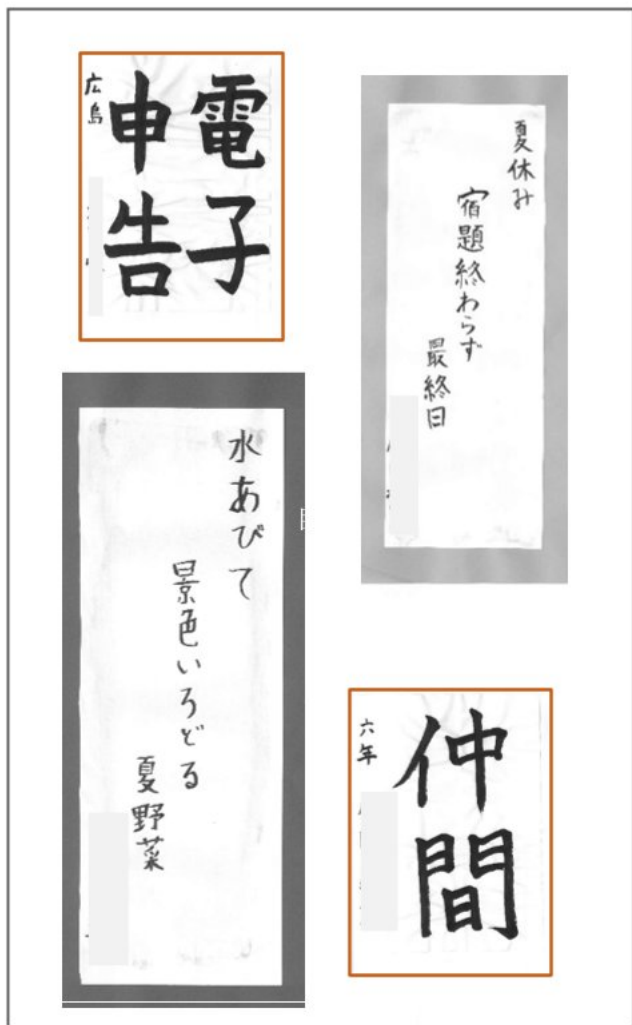 電子
申告
広島
夏休み
宿題終わらず
最終日
水あびて
景色いろどる
夏野菜
仲間
六年